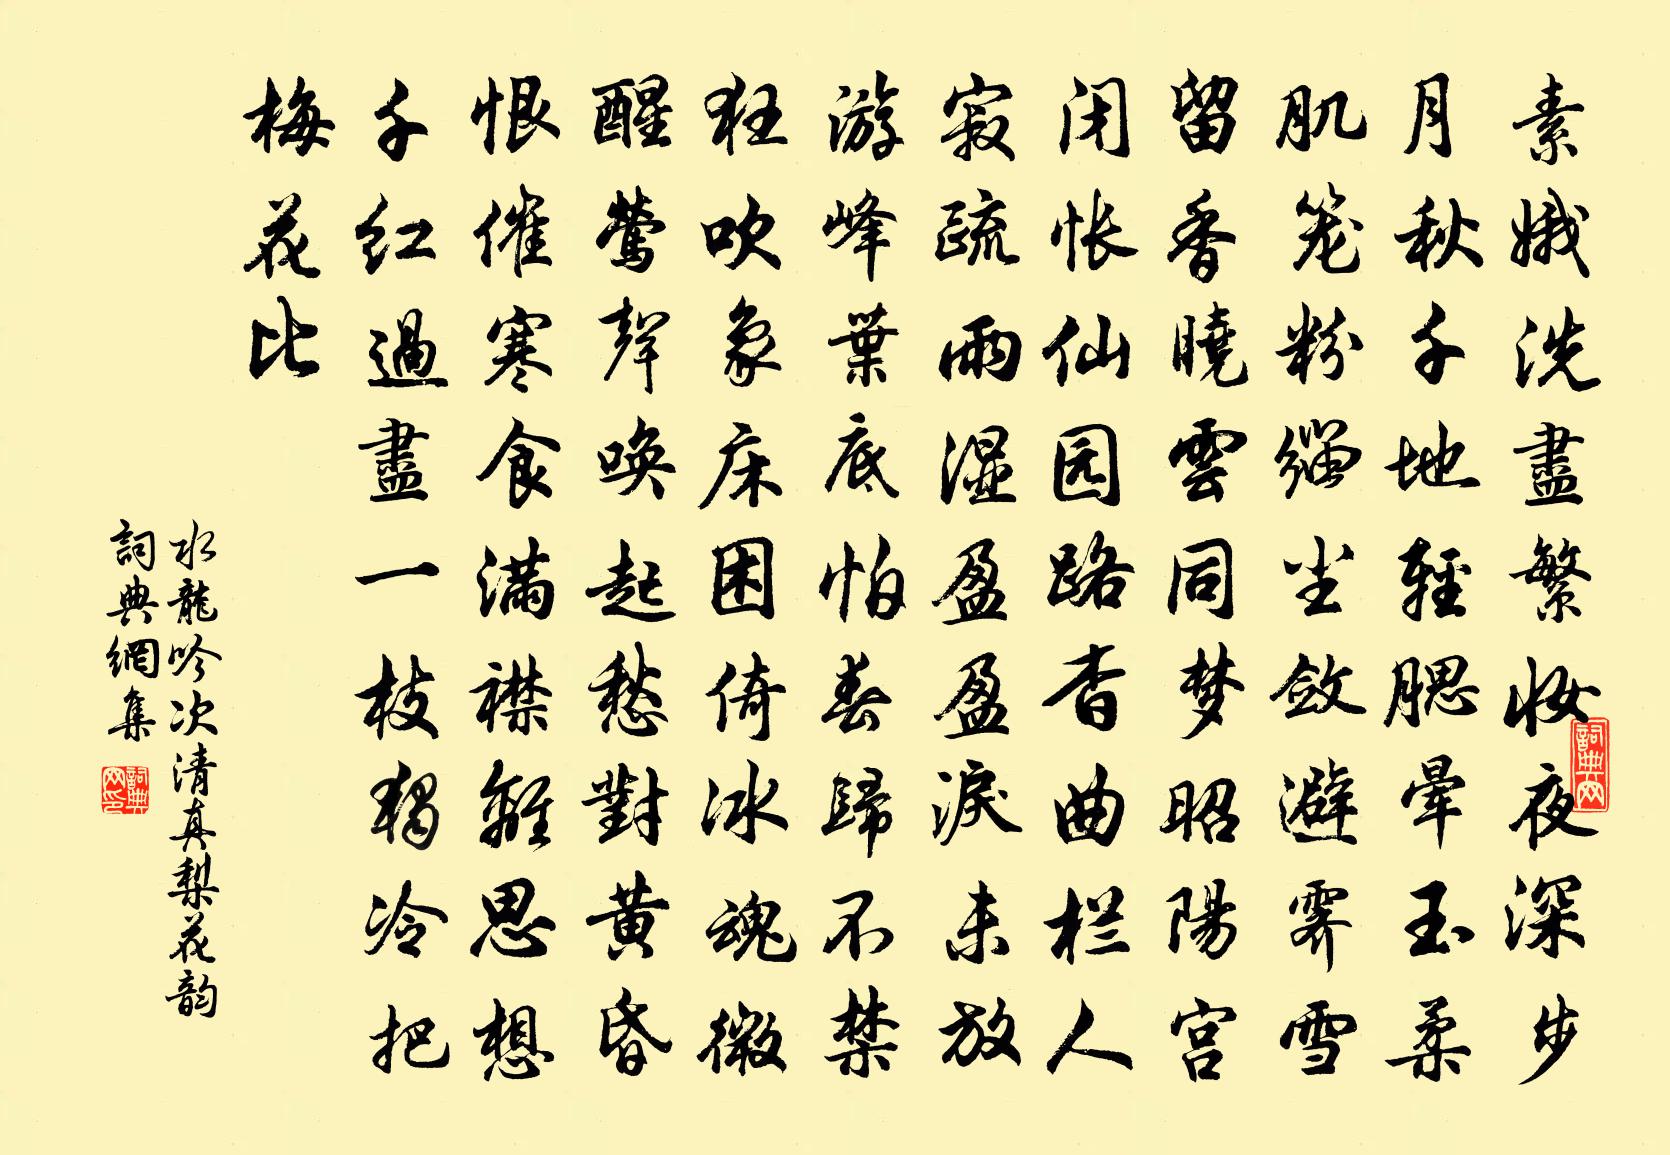 素娥洗盡繁妝夜深步
月秋千地輕腮暈玉柔
肌笼粉缁尘敛避霽雪
留香曉雲同梦昭陽宫
闭怅仙园路杳曲栏人
寂疏雨湿盈盈淚未放
游峰葉底怕春歸不禁
狂吹象床困倚冰魂微
醒莺聲唤起愁對黄昏
恨催寒食满襟離思想
千红過盡一枝独冷把
梅花比
水龍吟次清真梨花韵
詞典網集
詞典网
詞典网印